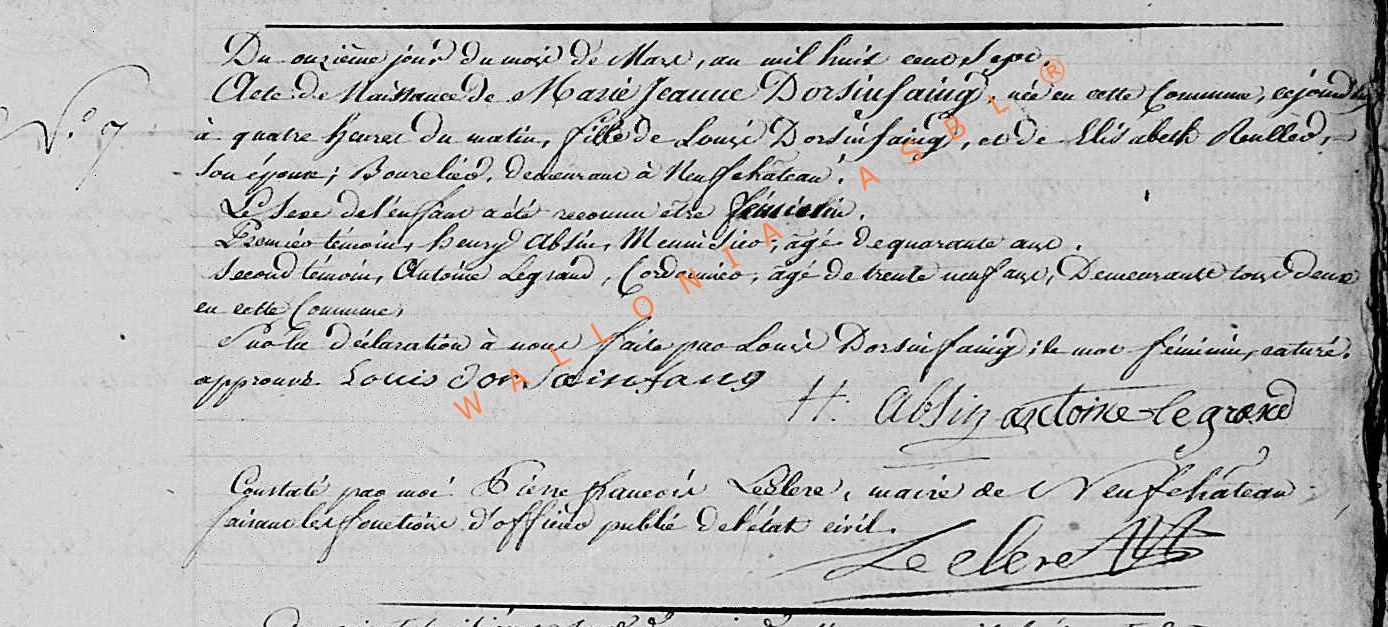 Du onzième jour du mois de Mars, an mil huit cent sept.
Acte de Naissance de Marie Jeanne Dorsinfaing, née en cette Commune, ce jourdhui
N.° 7. à quatre heures du matin, fille de Louis Dorsinfaing, et de Elisabeth
son épouse; Bourelier, demeurant à Neufchâteau.
Le Sexe de l'enfant a été reconnu être féminin.
Premier témoin, henry absin, Menuisier, âgé de quarante ans.
Second témoin, Antoine Legrand, Cordonnier, âgé de trente neuf ans, Demeurants tous deux
en cette Commune,
Sur la déclaration à nous faite par Louis Dorsinfaing; le mot féminin, raturé.
approuvé. Louis dorsainfang
H. absin antoine legrand
Constaté par moi Pierre françois LeClerc, maire de Neufchâteau
faisant les fonctions d'officier public de l'état civil.
Leclerc
WALLONIA ASBL ®